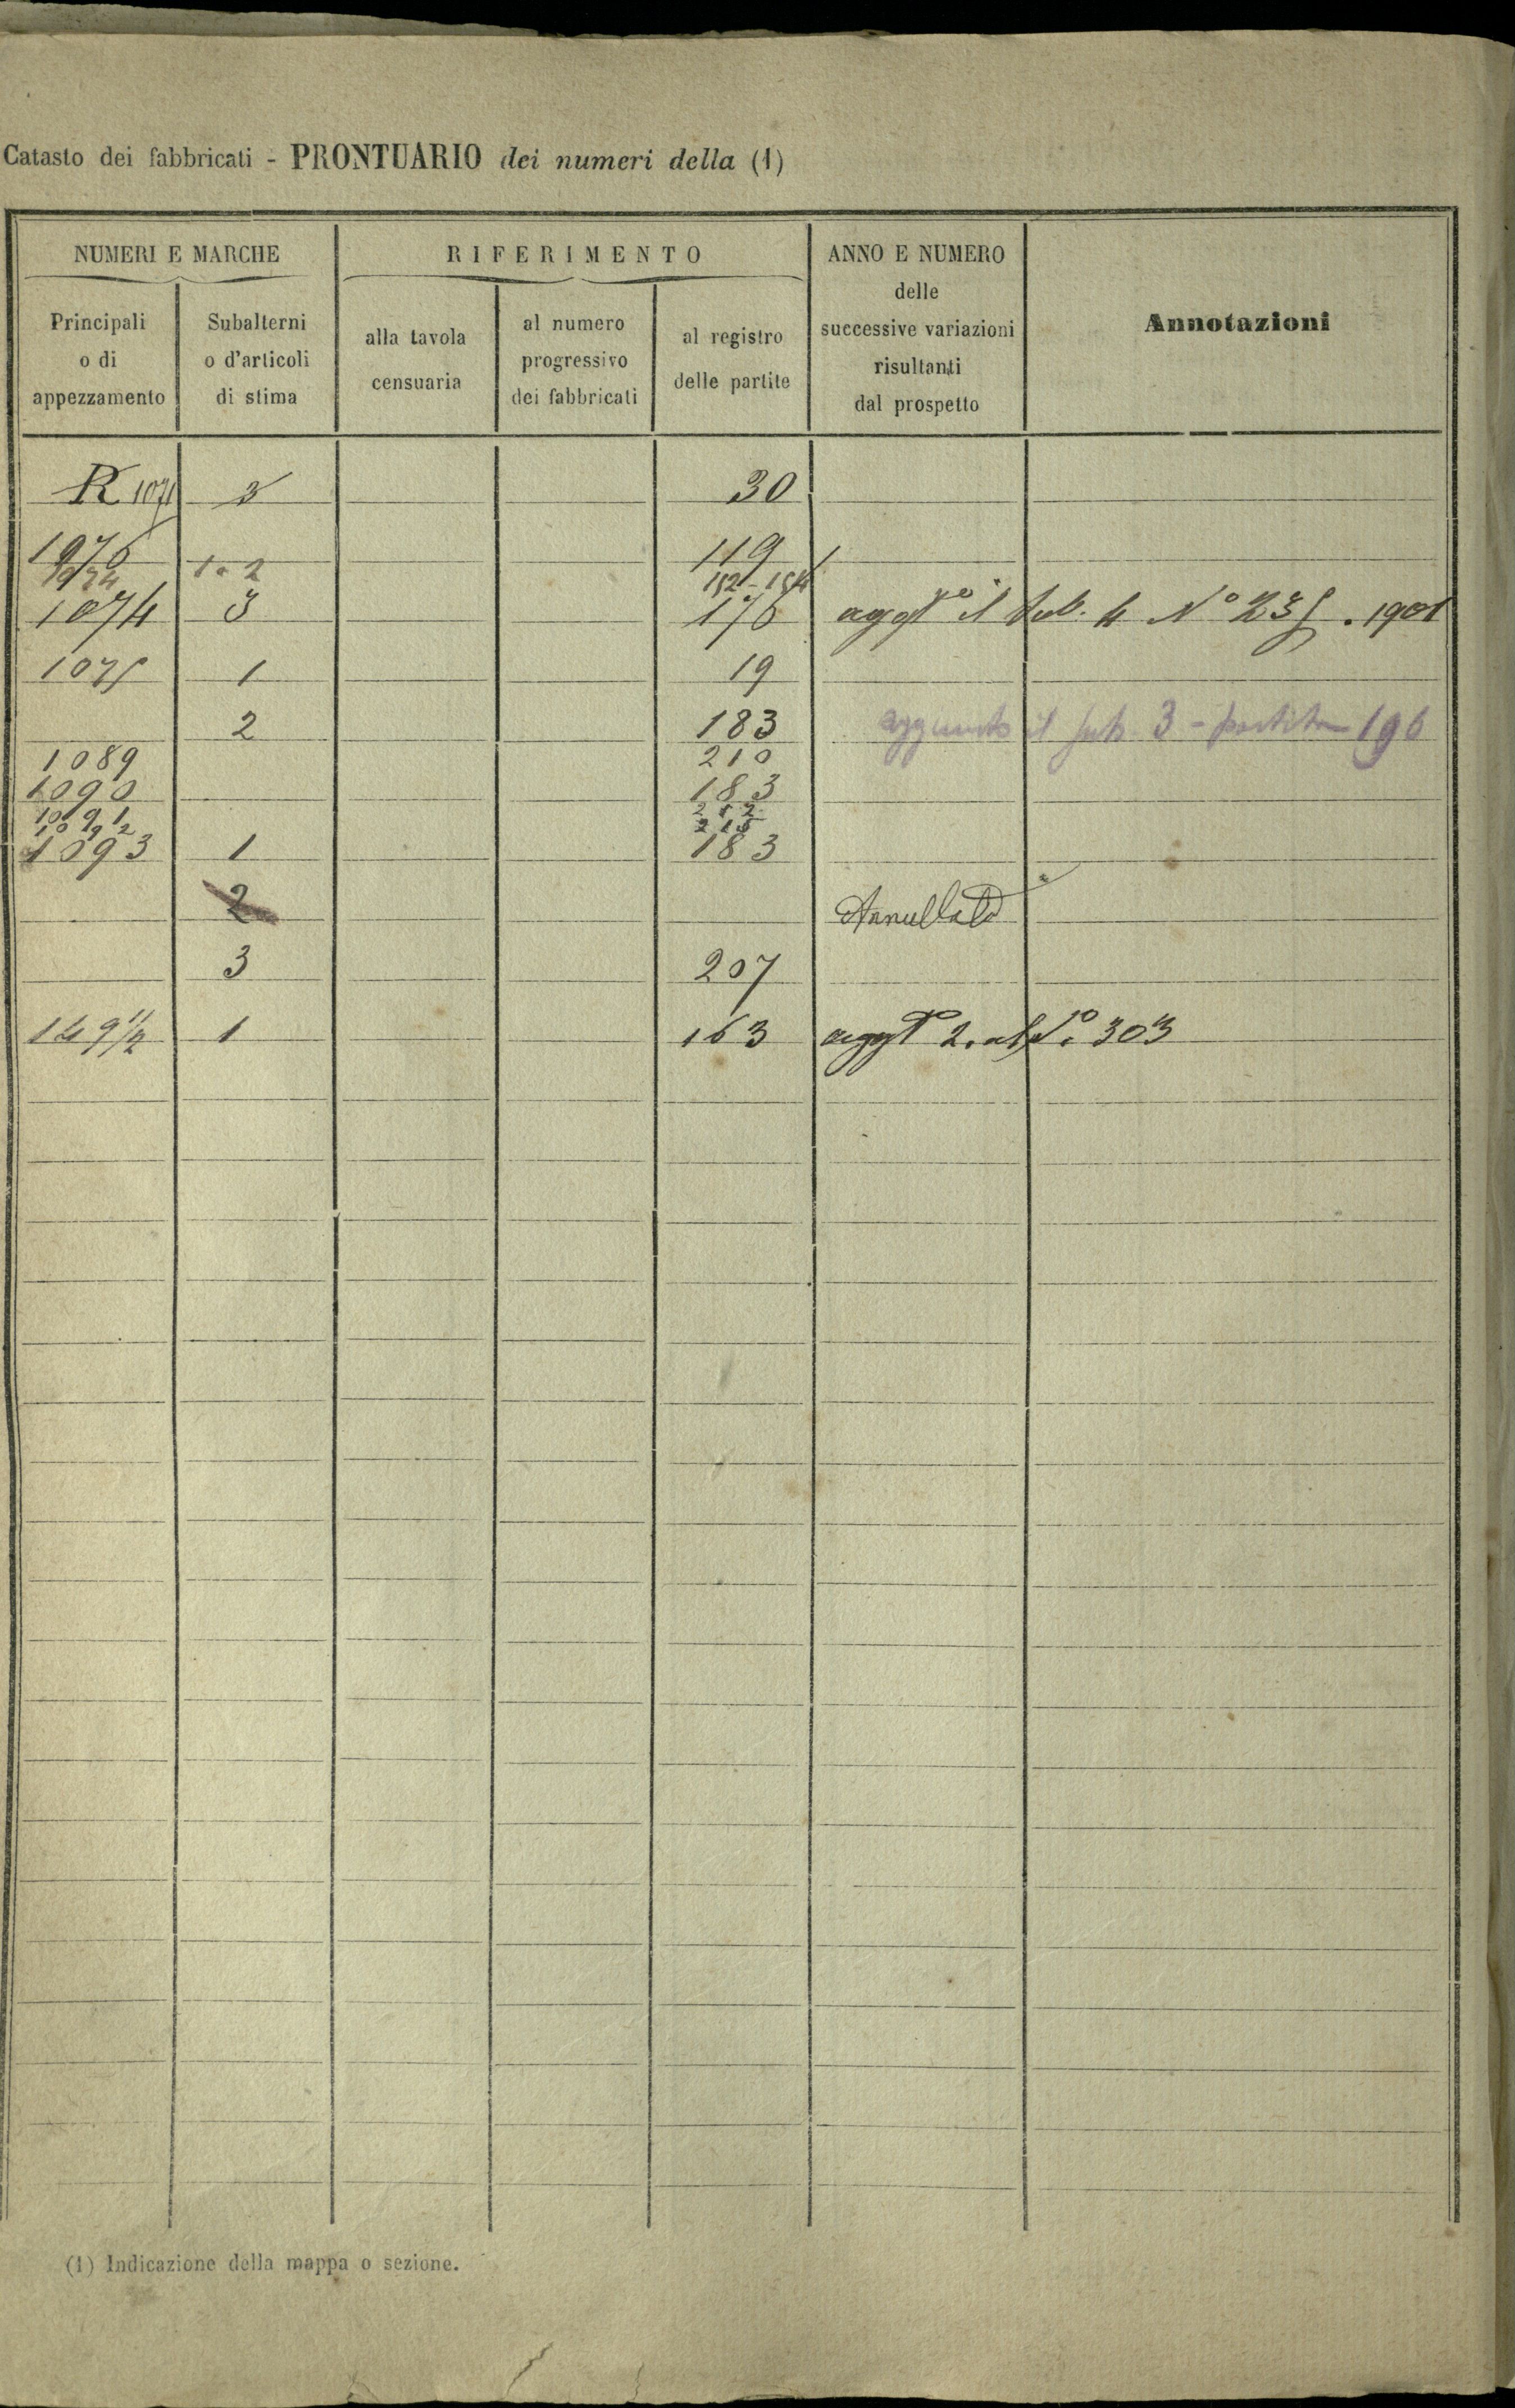 Catasto dei fabbricati - PRONTUARIO dei numeri della (1)
NUMERI E MARCHE
RIFERIMENTO
ANNO E NUMERO
delle
successive variazioni
risultanti
dal prospetto
Annotazioni
Principali
o di
appezzamento
Subalterni
o d'articoli
di stima
alla tavola
censuaria
al numero
progressivo
dei fabbricati
al registro
delle partite
R 1071 3 30
119
1. 2 152 - 154
1074 3 176 aggto il sub. 4 No 235. 1901
1075 1 19
2 183 aggiunto il sub. 3 - partita 196
1089 210
1090 183
1091 212
1092 215
1093 1 183
2 Annullato
3 207
149 1/2 1 163 aggto 2. al No 303
(1) Indicazione della mappa o sezione.